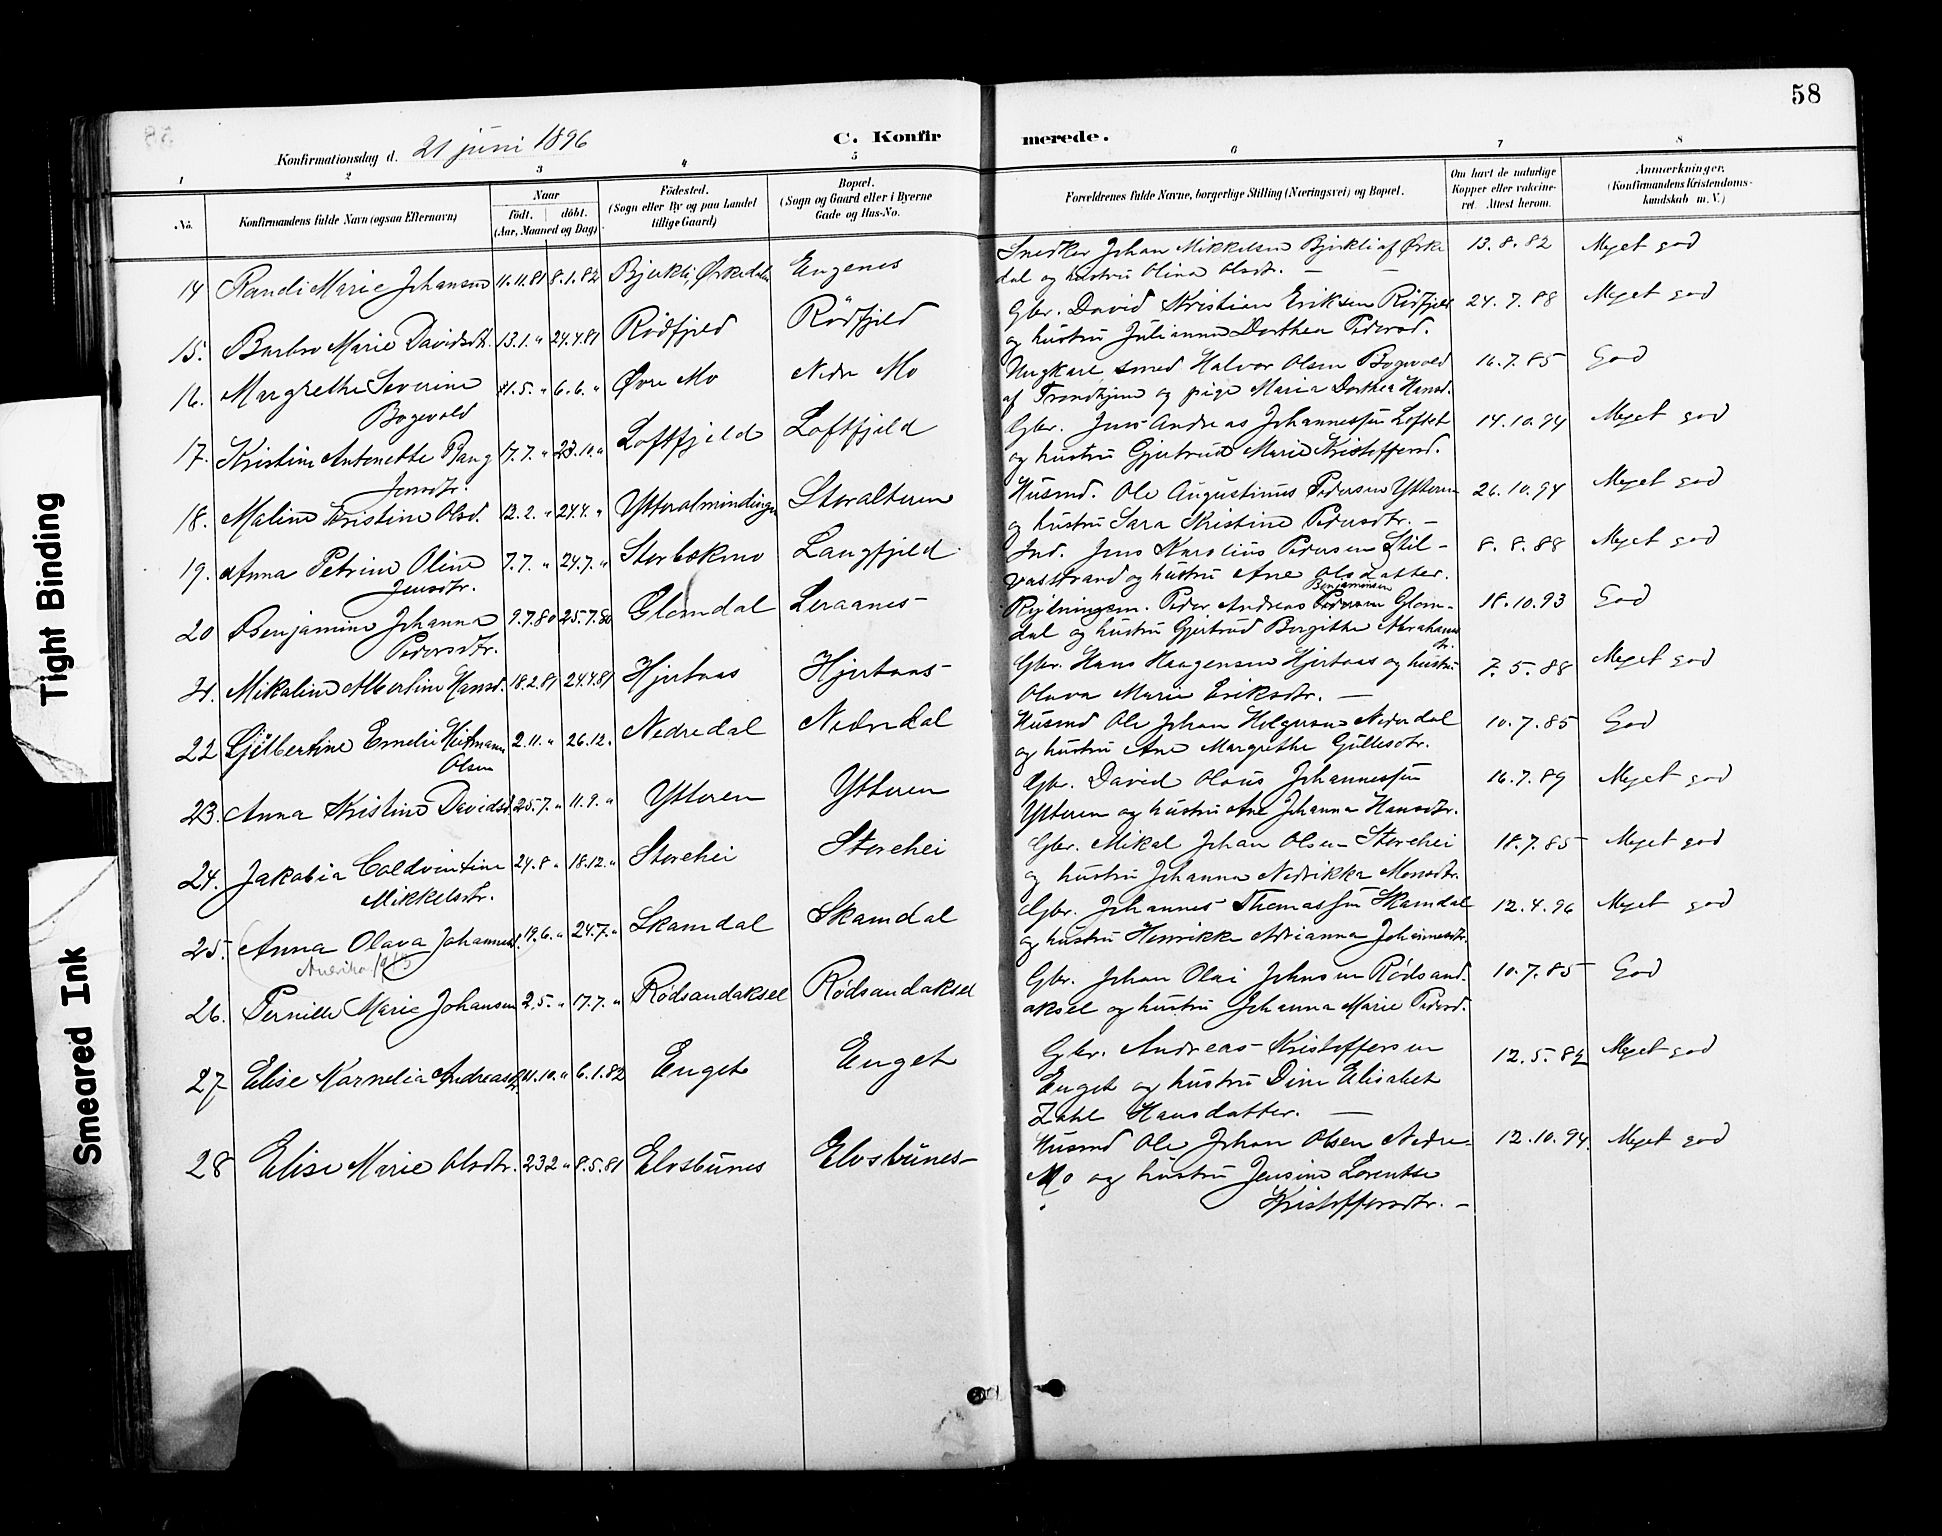 58
Konfirmationsdag d. 21 juni 1896
C. Konfirmerede.
1 2 3 4 5 6 7 8
No. Konfirmandens fulde Navn (ogsaa Efternavn) Naar født. døbt. (Aar, Maaned og Dag) Fødested. (Sogn eller By og paa Landet tillige Gaard) Bopæl. (Sogn og Gaard eller i Byerne Gade og Hus-No. Forældrenes fulde Navne, borgerlige Stilling (Næringsvei) og Bopæl. Om havt de naturlige Kopper eller vakcineret. Attest herom. Anmærkninger. (Konfirmandens Kristendomskundskab m. V.)
14 Randi Marie Johansen 11.11.81 8.1.82 Bjerkli, Ørkedalen Engenes Snedker Johan Mikkelsen Bjerkli af Ørke 13.8.82 Meget god
dal og hustru Olina Olsdtr. —
15. Barbro Marie Davidsdtr. 13.1. " 24.4.81 Rödfjeld Rödfjeld Gbr. David Kristian Eriksen Rödfjeld 24.7.88 Meget god
og hustru Julianna Dorthea Pedersd.
16. Margrethe Severine 11.5. " 6.6. " Øvre Mo Nedre Mo Ungkarl smed Halvor Olsen Bogevold 16.7.85 God
Bogevold af Trondhjem og pige Maria Dorthea Hansd.
17. Kristine Antonette Bang 17.7. " 23.10. " Loftfjeld Loftfjeld Gbr. Jens Andreas Johannessen Loftet 14.10.94 Meget god
Jensdtr. og hustru Gjertrud Marie Kristoffersd.
18. Maline Kristine Olsd. 12.2. " 24.4. " Ytteralmindingen Storalteren Husmd. Ole Augustinus Pedersen Ytteren 26.10.94 Meget god
og hustru Sara Kristine Pedersdtr. —
19. Anna Petrine Oline 7.7. " 24.7. " Storbækmo Langfjeld Ind. Jens Karolius Pedersen Stil- 8.8.88 Meget god
Jensdtr. vasstrand og hustru Ane Olsdatter.
Benjaminsen
20 Benjamine Johanna 9.7.80 25.7.80 Glomdal Leraanes Rydningsm. Peder Andreas Pedersen Glom- 18.10.93 God
Pedersdtr. dal og hustru Gjertrud Bergitte Abrahams
dtr.
21. Mikaline Albertine Hansd. 18.2.81 24.4.81 Hjertaas Hjertaas Gbr. Hans Haagensen Hjertaas og hustru 7.5.88 Meget god
Olava Marie Eriksdtr. —
22 Gjilbertine Emelie Heitmann 2.11. " 26.12. Nedredal Nedredal Husmd Ole Johan Holgersen Nederdal 10.7.85 God
Olsen og hustru Ane Margrethe Gullesdtr.
23. Anna Kristine Davidsd. 25.7. " 11.9. " Ytteren Ytteren Gbr. David Olaus Johannessen 16.7.89 Meget god
Ytteren og hustru Ane Johanna Hansdtr.
24. Jakobia Coldvintine 24.8 " 18.12. " Storehei Storehei Gbr. Mikal Johan Olsen Storehei 18.7.85 Meget god
Mikkelsdtr. og hustru Johanna Nedrikka Monsdtr.
25. Anna Olava Johannesd. 19.6. " 24.7. " Skamdal Skamdal Gbr. Johannes Thomassen Skamdal 12.4.96 Meget god
og hustru Henrikke Adrianna Johannesdtr.
26. Pernille Marie Johansen 2.5. " 17.7. " Rödsandaksel Rödsandaksel Gbr. Johan Olai Johnsen Rødsand. 10.7.85 God
aksel og hustru Johanna Marie Pedersd.
27 Elise Kornelia Andreasd. 21.10. " 6.1.82 Enget Enget Gbr. Andreas Kristoffersen 12.5.82 Meget god
Enget og hustru Dine Elisabet
Zahl Hansdatter. —
28 Elise Marie Olsdtr. 23.2 " 8.5.81 Elvsbunes Elvsbunes Husmd Ole Johan Olsen Nedre- 12.10.94. Meget god
Mo og hustru Jensine Lorentse
Kristoffersdtr. —
Tight Binding
Smeared Ink